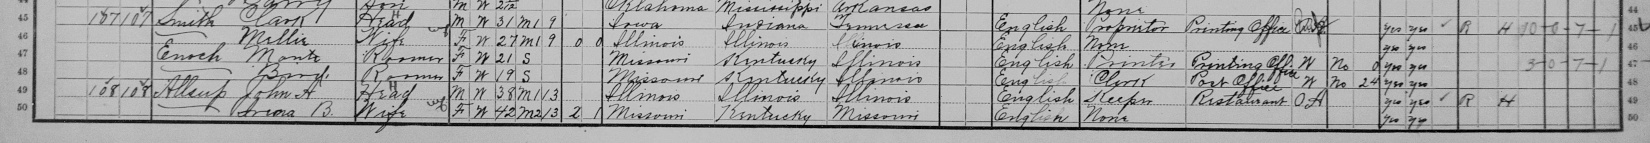 44 Harry Son M W 2 Oklahoma Mississippi Arkansas None 44
45 107 107 Smith Clark Head M W 31 M1 9 Iowa Indiana Tennessee English Proprietor Printing Office yes yes R H 10-0-7-1 45
46 Millie Wife F W 27 M1 9 0 0 Illinois Illinois Illinois English None yes yes 46
47 Enoch Monte Roomer F W 21 S Missouri Kentucky Illinois English Printer Printing Office W No 0 yes yes 3-0-7-1 47
48 Roomer F W 19 S Missouri Kentucky Illinois English Clerk Post Office W No 24 yes yes 48
49 108 108 Allsup John A Head M W 38 M1 13 Illinois Illinois Illinois English Keeper Restaurant OA yes yes R H 49
50 B. Wife F W 42 M2 13 2 1 Missouri Kentucky Missouri English None yes yes 50